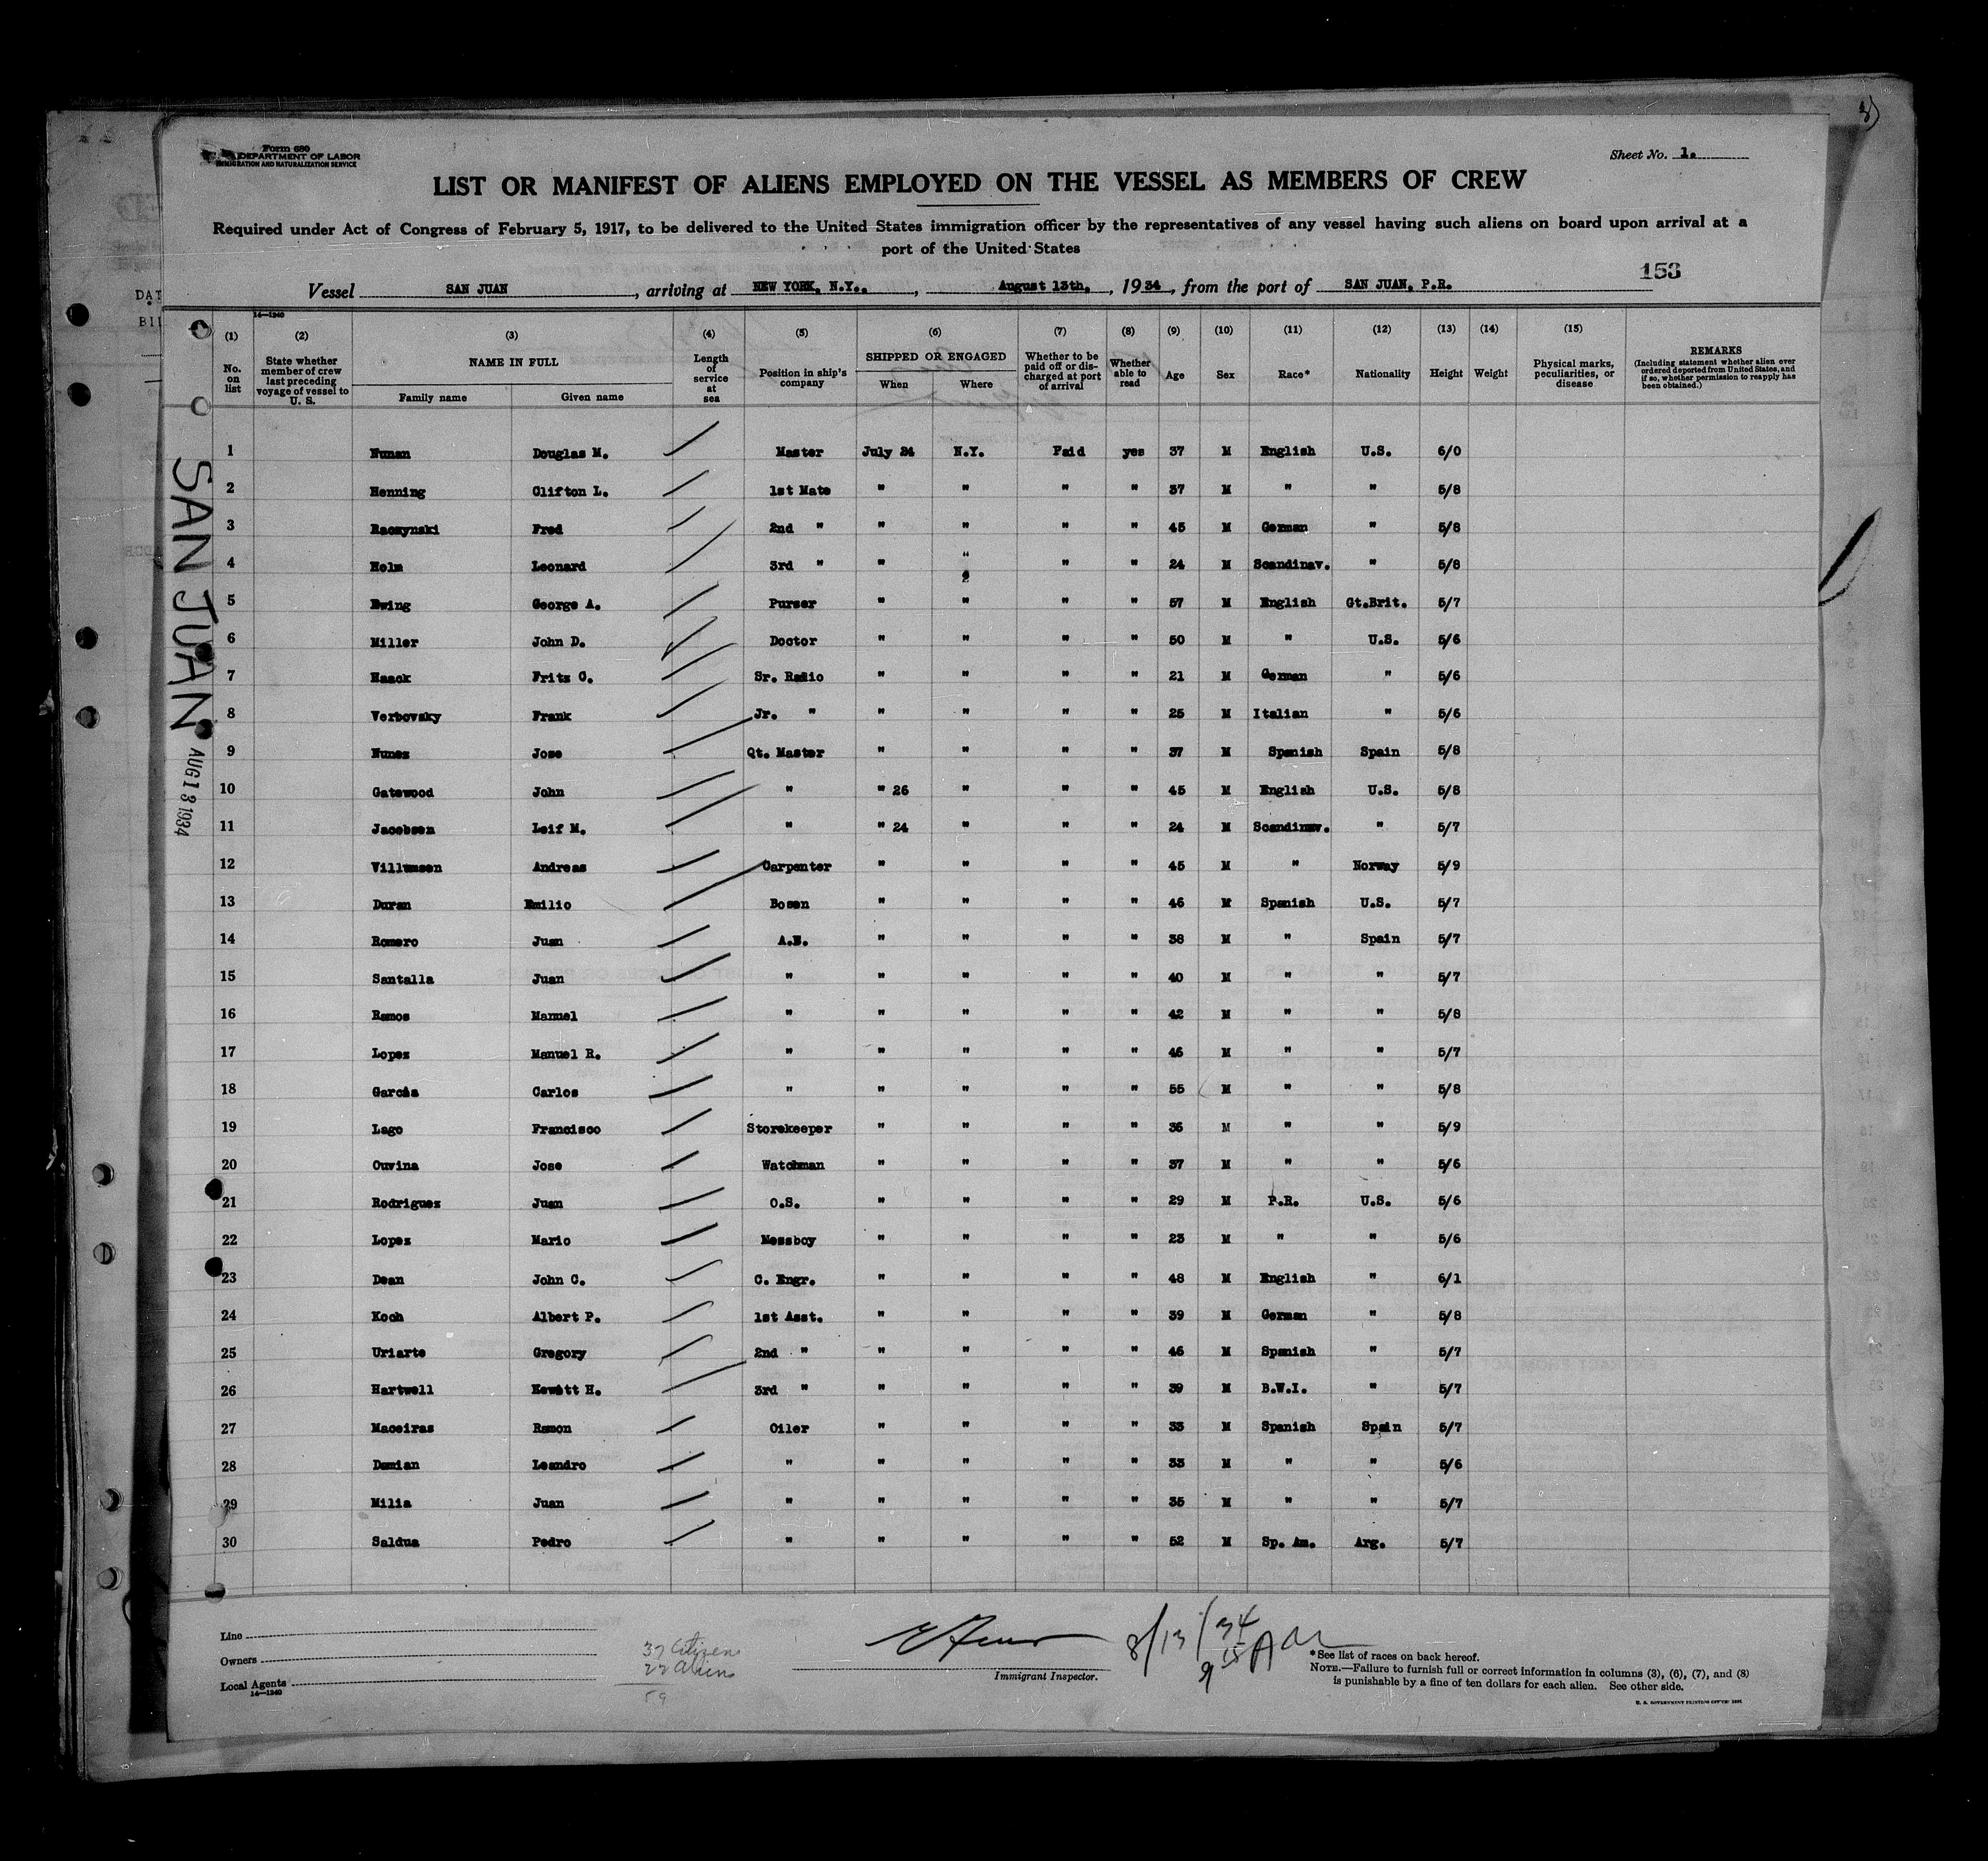 Form 680
DEPARTMENT OF LABOR
IMMIGRATION AND NATURALIZATION SERVICE
Sheet No. 1.
LIST OR MANIFEST OF ALIENS EMPLOYED ON THE VESSEL AS MEMBERS OF CREW
Required under Act of Congress of February 5, 1917, to be delivered to the United States immigration officer by the representatives of any vessel having such aliens on board upon arrival at a
port of the United States
153
Vessel SAN JUAN, arriving at NEW YORK, N.Y., August 13th, 1934, from the port of SAN JUAN, P.R.
14—1240
(1) (2) (3) (4) (5) (6) (7) (8) (9) (10) (11) (12) (13) (14) (15)
No. on list State whether member of crew last preceding voyage of vessel to U. S. NAME IN FULL Family name Given name Length of service at sea Position in ship's company SHIPPED OR ENGAGED When Where Whether to be paid off or discharged at port of arrival Whether able to read Age Sex Race* Nationality Height Weight Physical marks, peculiarities, or disease REMARKS (Including statement whether alien over ordered deported from United States, and if so, whether permission to reapply has been obtained.)
1 Nunan Douglas M. Master July 24 N.Y. Paid yes 37 M English U.S. 6/0
2 Henning Clifton L. 1st Mate " " " " 37 M " " 5/8
3 Raczynski Fred 2nd " " " " " 45 M German " 5/8
4 Helm Leonard 3rd " " " " " 24 M Scandinav. " 5/8
5 Ewing George A. Purser " " " " 57 M English Gt.Brit. 5/7
6 Miller John D. Doctor " " " " 50 M " U.S. 5/6
7 Haack Fritz C. Sr. Radio " " " " 21 M German " 5/6
8 Verbovsky Frank Jr. " " " " " 25 M Italian " 5/6
9 Nunez Jose Qt. Master " " " " 37 M Spanish Spain 5/8
10 Gatewood John " " 26 " " " 45 M English U.S. 5/8
11 Jacobsen Leif M. " " 24 " " " 24 M Scandinav. " 5/7
12 Villumsen Andreas Carpenter " " " " 45 M " Norway 5/9
13 Duran Emilio Bosen " " " " 46 M Spanish U.S. 5/7
14 Romero Juan A.B. " " " " 38 M " Spain 5/7
15 Santalla Juan " " " " " 40 M " " 5/7
16 Ramos Manuel " " " " " 42 M " " 5/8
17 Lopez Manuel R. " " " " " 46 M " " 5/7
18 Garcia Carlos " " " " " 55 M " " 5/8
19 Lago Francisco Storekeeper " " " " 36 M " " 5/9
20 Ouvina Jose Watchman " " " " 37 M " " 5/6
21 Rodriguez Juan O.S. " " " " 29 M P.R. U.S. 5/6
22 Lopez Mario Messboy " " " " 23 M " " 5/6
23 Dean John C. C. Engr. " " " " 48 M English " 6/1
24 Koch Albert P. 1st Asst. " " " " 39 M German " 5/8
25 Uriarte Gregory 2nd " " " " " 46 M Spanish " 5/7
26 Hartwell Hewitt H. 3rd " " " " " 39 M B.W.I. " 5/7
27 Maceiras Ramon Oiler " " " " 33 M Spanish Spain 5/7
28 Damian Leandro " " " " " 33 M " " 5/6
29 Milia Juan " " " " " 35 M " " 5/7
30 Saldua Pedro " " " " " 52 M Sp. Am. Arg. 5/7
SAN JUAN
AUG 13 1934
Line
Owners
Local Agents
14—1240
37 Citizens
22 Aliens
59
8/13/34
Immigrant Inspector.
*See list of races on back hereof.
NOTE.—Failure to furnish full or correct information in columns (3), (6), (7), and (8)
is punishable by a fine of ten dollars for each alien. See other side.